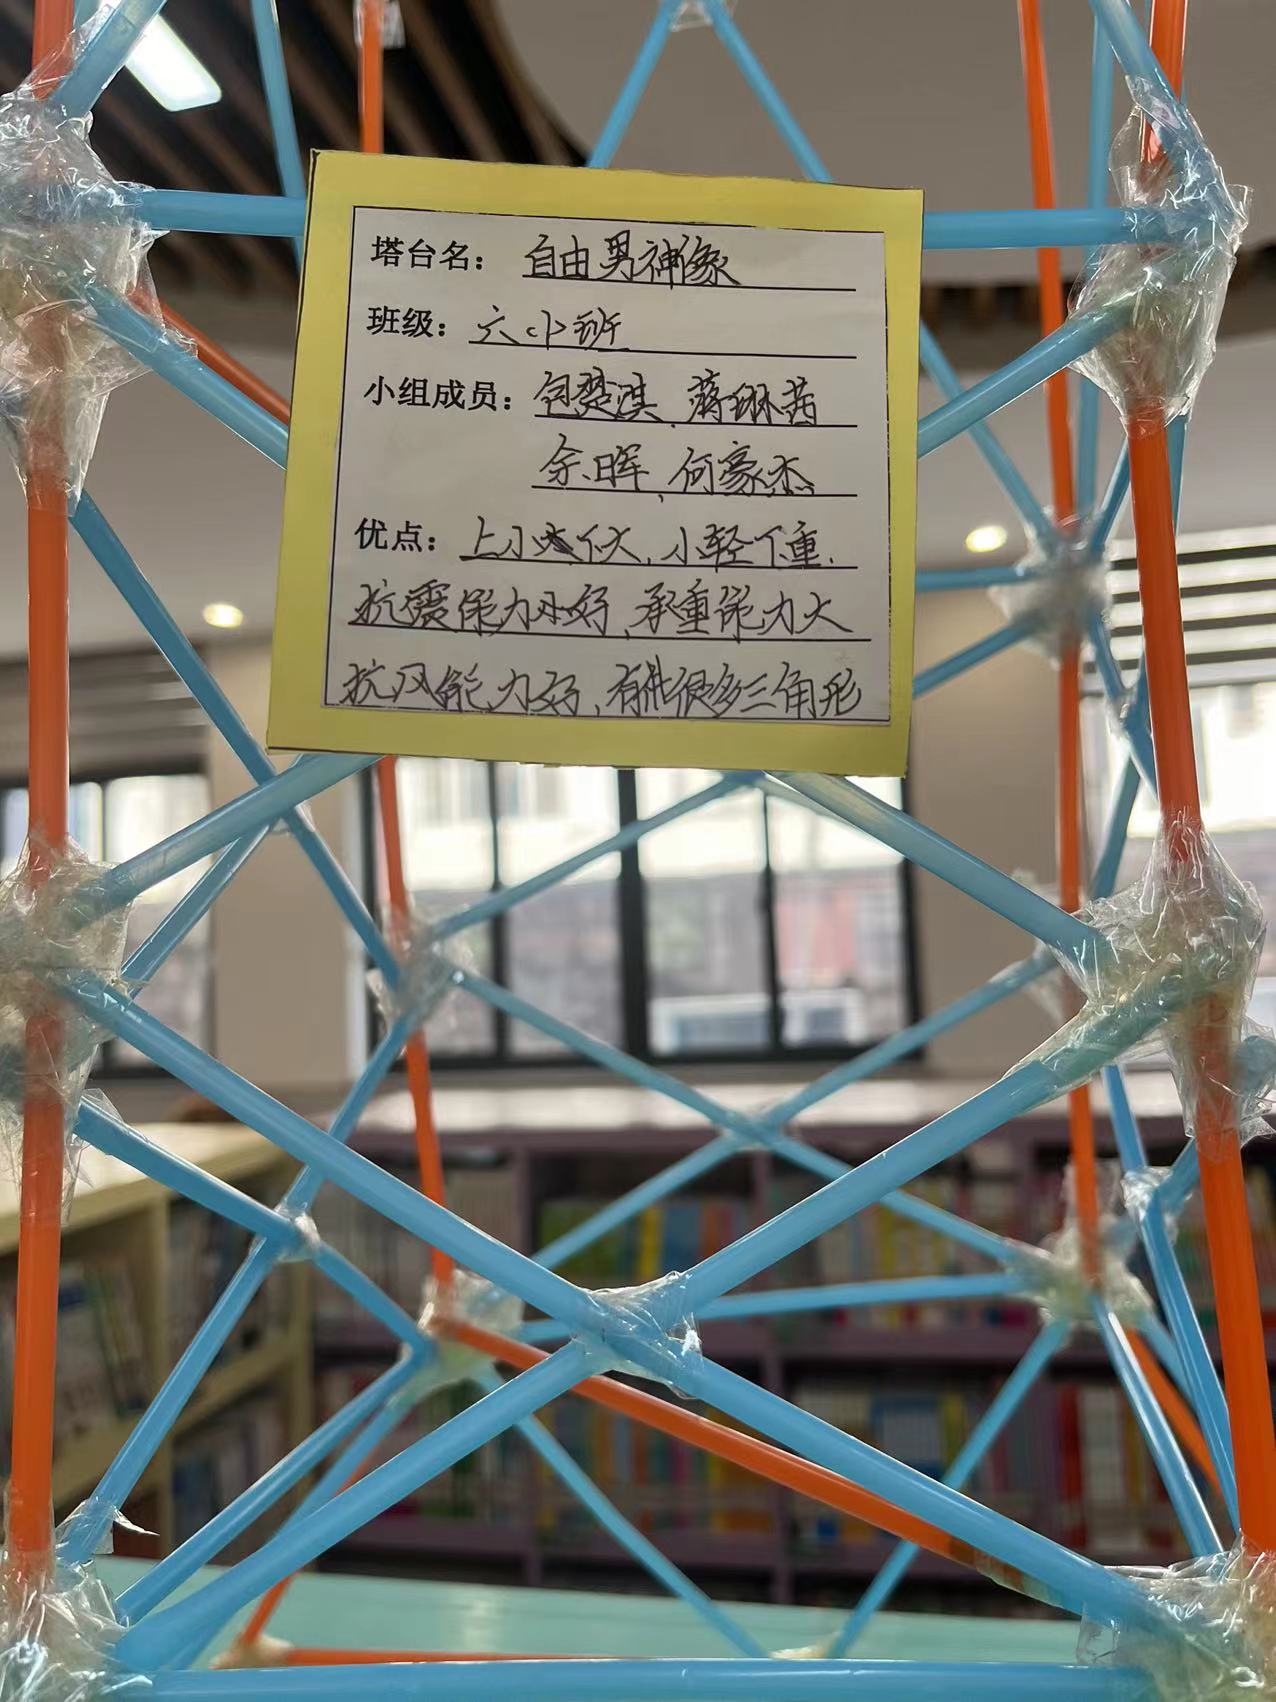 塔台名：自由男神像
班级：六小班
小组成员：包楚淇、蒋琳茜
余晖、何豪杰
优点：上小下大，小轻下重.
抗震能力好，承重能力大
抗风能力好，有很多三角形